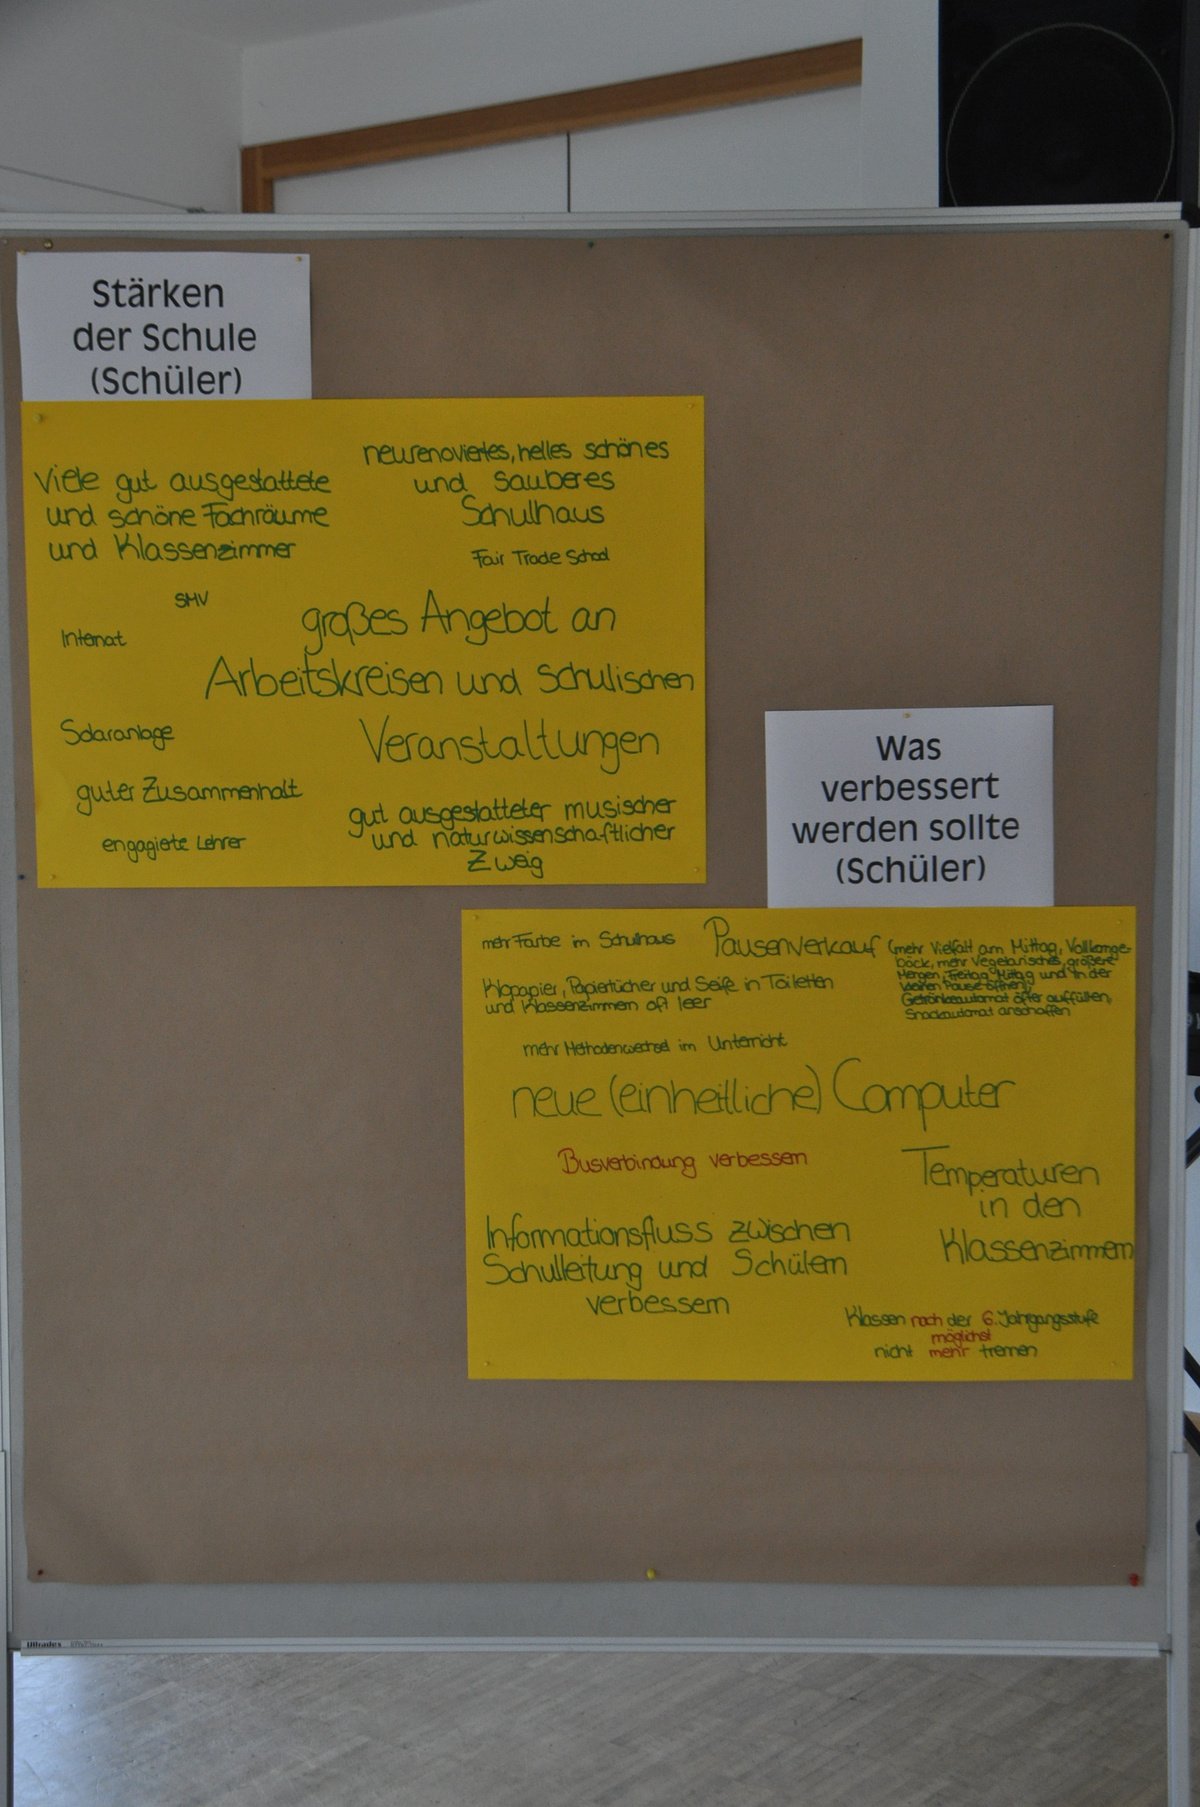 Stärken
der Schule
(Schüler)
Viele gut ausgestattete
und schöne Fachräume
und Klassenzimmer
neurenoviertes, helles schönes
und sauberes
Schulhaus
Fair Trade School
SMV
Internat
großes Angebot an
Arbeitskreisen und schulischen
Veranstaltungen
Solaranlage
guter Zusammenhalt
engagierte Lehrer
gut ausgestatteter musischer
und naturwissenschaftlicher
Zweig
Was
verbessert
werden sollte
(Schüler)
mehr Farbe im Schulhaus
Pausenverkauf (mehr Vielfalt am Mittag, Vollkornge-
bäck, mehr Vegetarisches, größere
Mengen, Freitag Mittag und in der
kleinen Pause öffnen),
Getränkeautomat öfter auffüllen,
Snackautomat anschaffen
Klopapier, Papiertücher und Seife in Toiletten
und Klassenzimmern oft leer
mehr Methodenwechsel im Unterricht
neue (einheitliche) Computer
Busverbindung verbessern
Temperaturen
in den
Klassenzimmern
Informationsfluss zwischen
Schulleitung und Schülern
verbessern
Klassen nach der 6. Jahrgangsstufe
möglichst
nicht mehr trennen
Ultradex